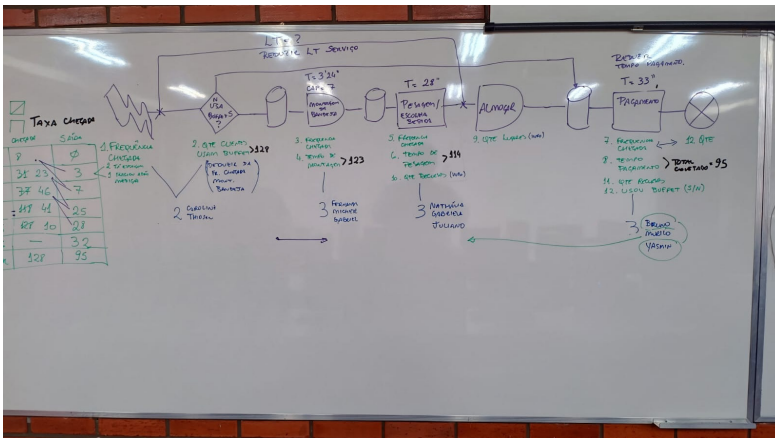 LT = ?
REDUZIR LT SERVIÇO
REDUZIR
TEMPO PAGAMENTO.
T = 3'24"
CAP = 7
T = 28"
T = 33"
N
USA
BUFFET
?
MONTAGEM
DA
BANDEJA
PESAGEM/
ESCOLHA
ALMOÇAR
PAGAMENTO
TAXA CHEGADA
CHEGADA SAÍDA
8 Ø
31 23 3
77 46 7
118 41 25
128 10 28
— 32
128 95
1. FREQUÊNCIA
CHEGADA
2. QTE CLIENTES
USAM BUFFET > 128
2 CAROLINA
3. FREQUÊNCIA
CHEGADA
4. TEMPO DE
MONTAGEM > 123
3 FERNANDA
MICHELE
GABRIEL
5. FREQUÊNCIA
CHEGADA
6. TEMPO DE
PESAGEM > 114
3 MATHEUS
GABRIELA
JULIANO
7. FREQUENCIA
CHEGADA
12 QTE
8. TEMPO
PAGAMENTO > TOTAL
COLETADO = 95
11. QTE RECURSOS
12. USOU BUFFET (S/N)
3 BRUNO
MURILO
YASMIN